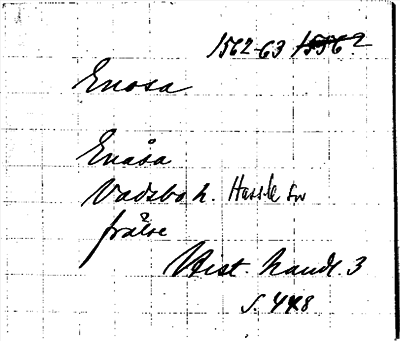 1562-63 1556?
Enosa
Enåsa
Vadsbo h. Hassle sn
frälse
Hist. handl. 3
s. 448